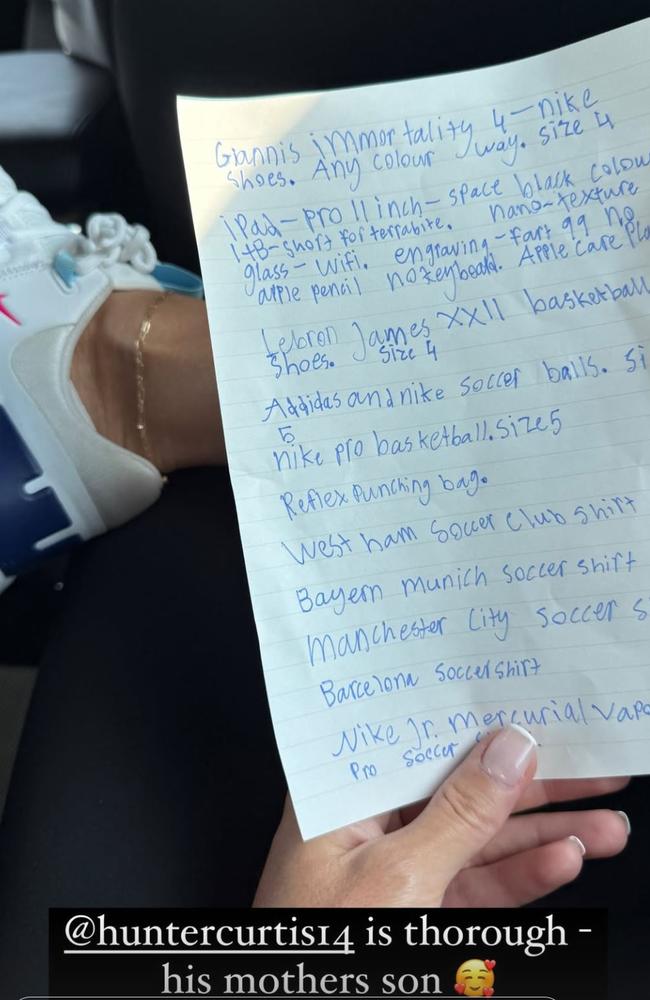 Giannis immortality 4-nike
shoes. Any colour way. size 4
iPad-pro 11 inch- space black colou
1+B-short for terrabite. nano-texture
glass- wifi. engraving-fart 99 no
apple pencil no keyboard. Apple care Plu
Lebron James XXII basketball
shoes. size 4
Addidas and nike soccer balls. si
5
nike pro basketball. size 5
Reflex Punching bag.
West ham soccer club shirt
Bayern munich soccer shirt
manchester City soccer s
Barcelona soccer shirt
Nike Jr. mercurial vapo
Pro soccer
@huntercurtis14 is thorough -
his mothers son 🥰